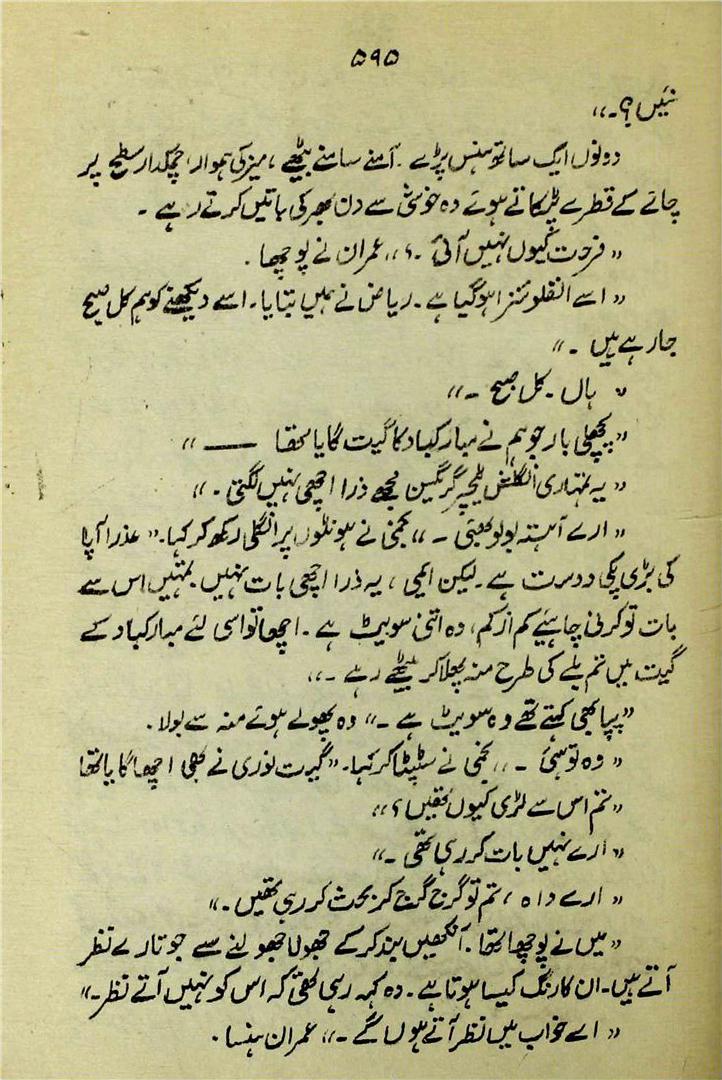 ۵۹۵
نئیں؟۔"
دونوں ایک ساتھ ہنس پڑے۔ آمنے سامنے بیٹھے، میز کی ہموار چمکدار سطح پر
چائے کے قطرے ٹپکاتے ہوئے وہ خوشی سے دن بھر کی باتیں کرتے رہے۔
"فرحت کیوں نہیں آئی۔؟" عمران نے پوچھا۔
"اسے انفلوئنزا ہو گیا ہے۔ ریاض نے ہمیں بتایا۔ اسے دیکھنے کو ہم کل صبح
جا رہے ہیں۔"
"ہاں۔ کل صبح۔"
"پچھلی بار جو ہم نے مبارکباد کا گیت گایا تھا ——"
"یہ تمہاری انگلش ٹیچر گرنگین مجھے ذرا اچھی نہیں لگتی۔"
"ارے آہستہ بولو بھئی۔" نجمی نے ہونٹوں پر انگلی رکھ کر کہا۔ "عذرا آپا
کی بڑی پکی دوست ہے۔ لیکن ایمی، یہ ذرا اچھی بات نہیں۔ تمہیں اس سے
بات تو کرنی چاہیئے کم از کم، وہ اتنی سویٹ ہے۔ اچھا تو اسی لئے مبارکباد کے
گیت میں تم بلے کی طرح منہ پھلا کر بیٹھے رہے۔"
"پپا بھی کہتے تھے وہ سویٹ ہے۔" وہ پھولے ہوئے منہ سے بولا۔
"وہ تو سہی۔" نجمی نے سٹپٹا کر کہا۔ "گیرت لوزی نے بھی اچھا گایا تھا
"تم اس سے لڑی کیوں تھیں؟"
"ارے نہیں بات کر رہی تھی۔"
"ارے واہ، تم تو گرج گرج کر بحث کر رہی تھیں۔"
"میں نے پوچھا تھا۔ آنکھیں بند کر کے جھولا جھولنے سے جو تارے نظر
آتے ہیں۔ ان کا رنگ کیسا ہوتا ہے۔ وہ کہہ رہی تھی کہ اس کو نہیں آتے نظر۔"
"اے خواب میں نظر آتے ہوں گے۔" عمران ہنسا۔